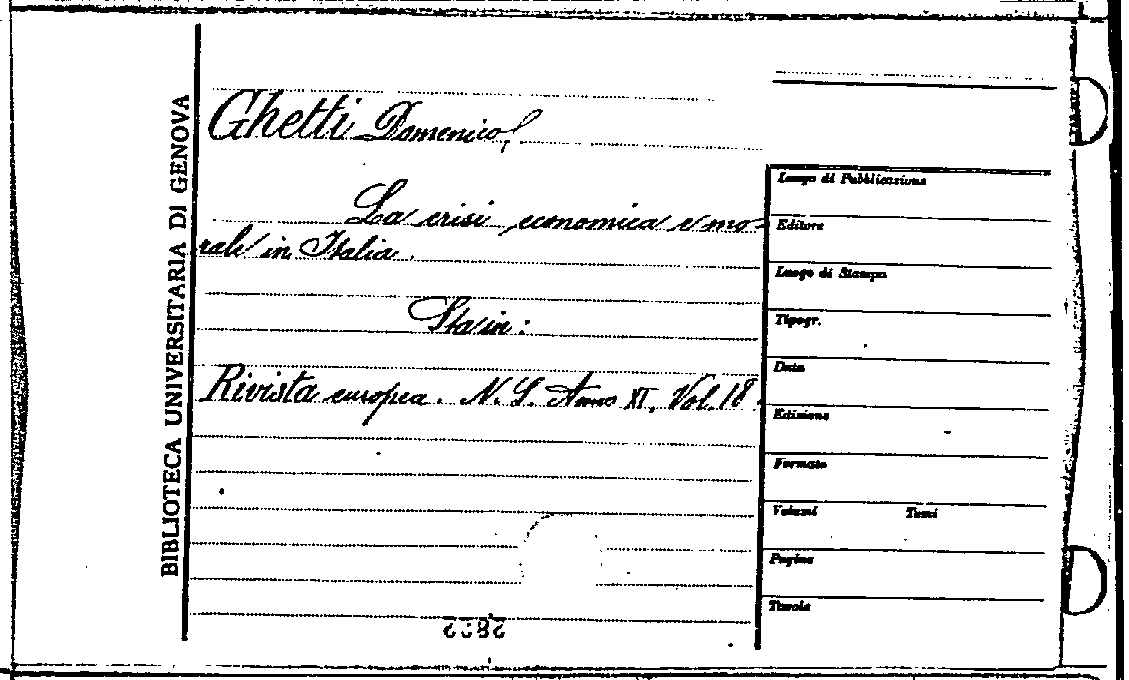 BIBLIOTECA UNIVERSITARIA DI GENOVA
Ghetti Domenico
La crisi economica e mo-
rale in Italia.
Sta in:
Rivista europea. N. S. Anno XI, Vol. 18.
Luogo di Pubblicazione
Editore
Luogo di Stampa
Tipogr.
Data
Edizione
Formato
Volumi Tomi
Pagine
Tavole